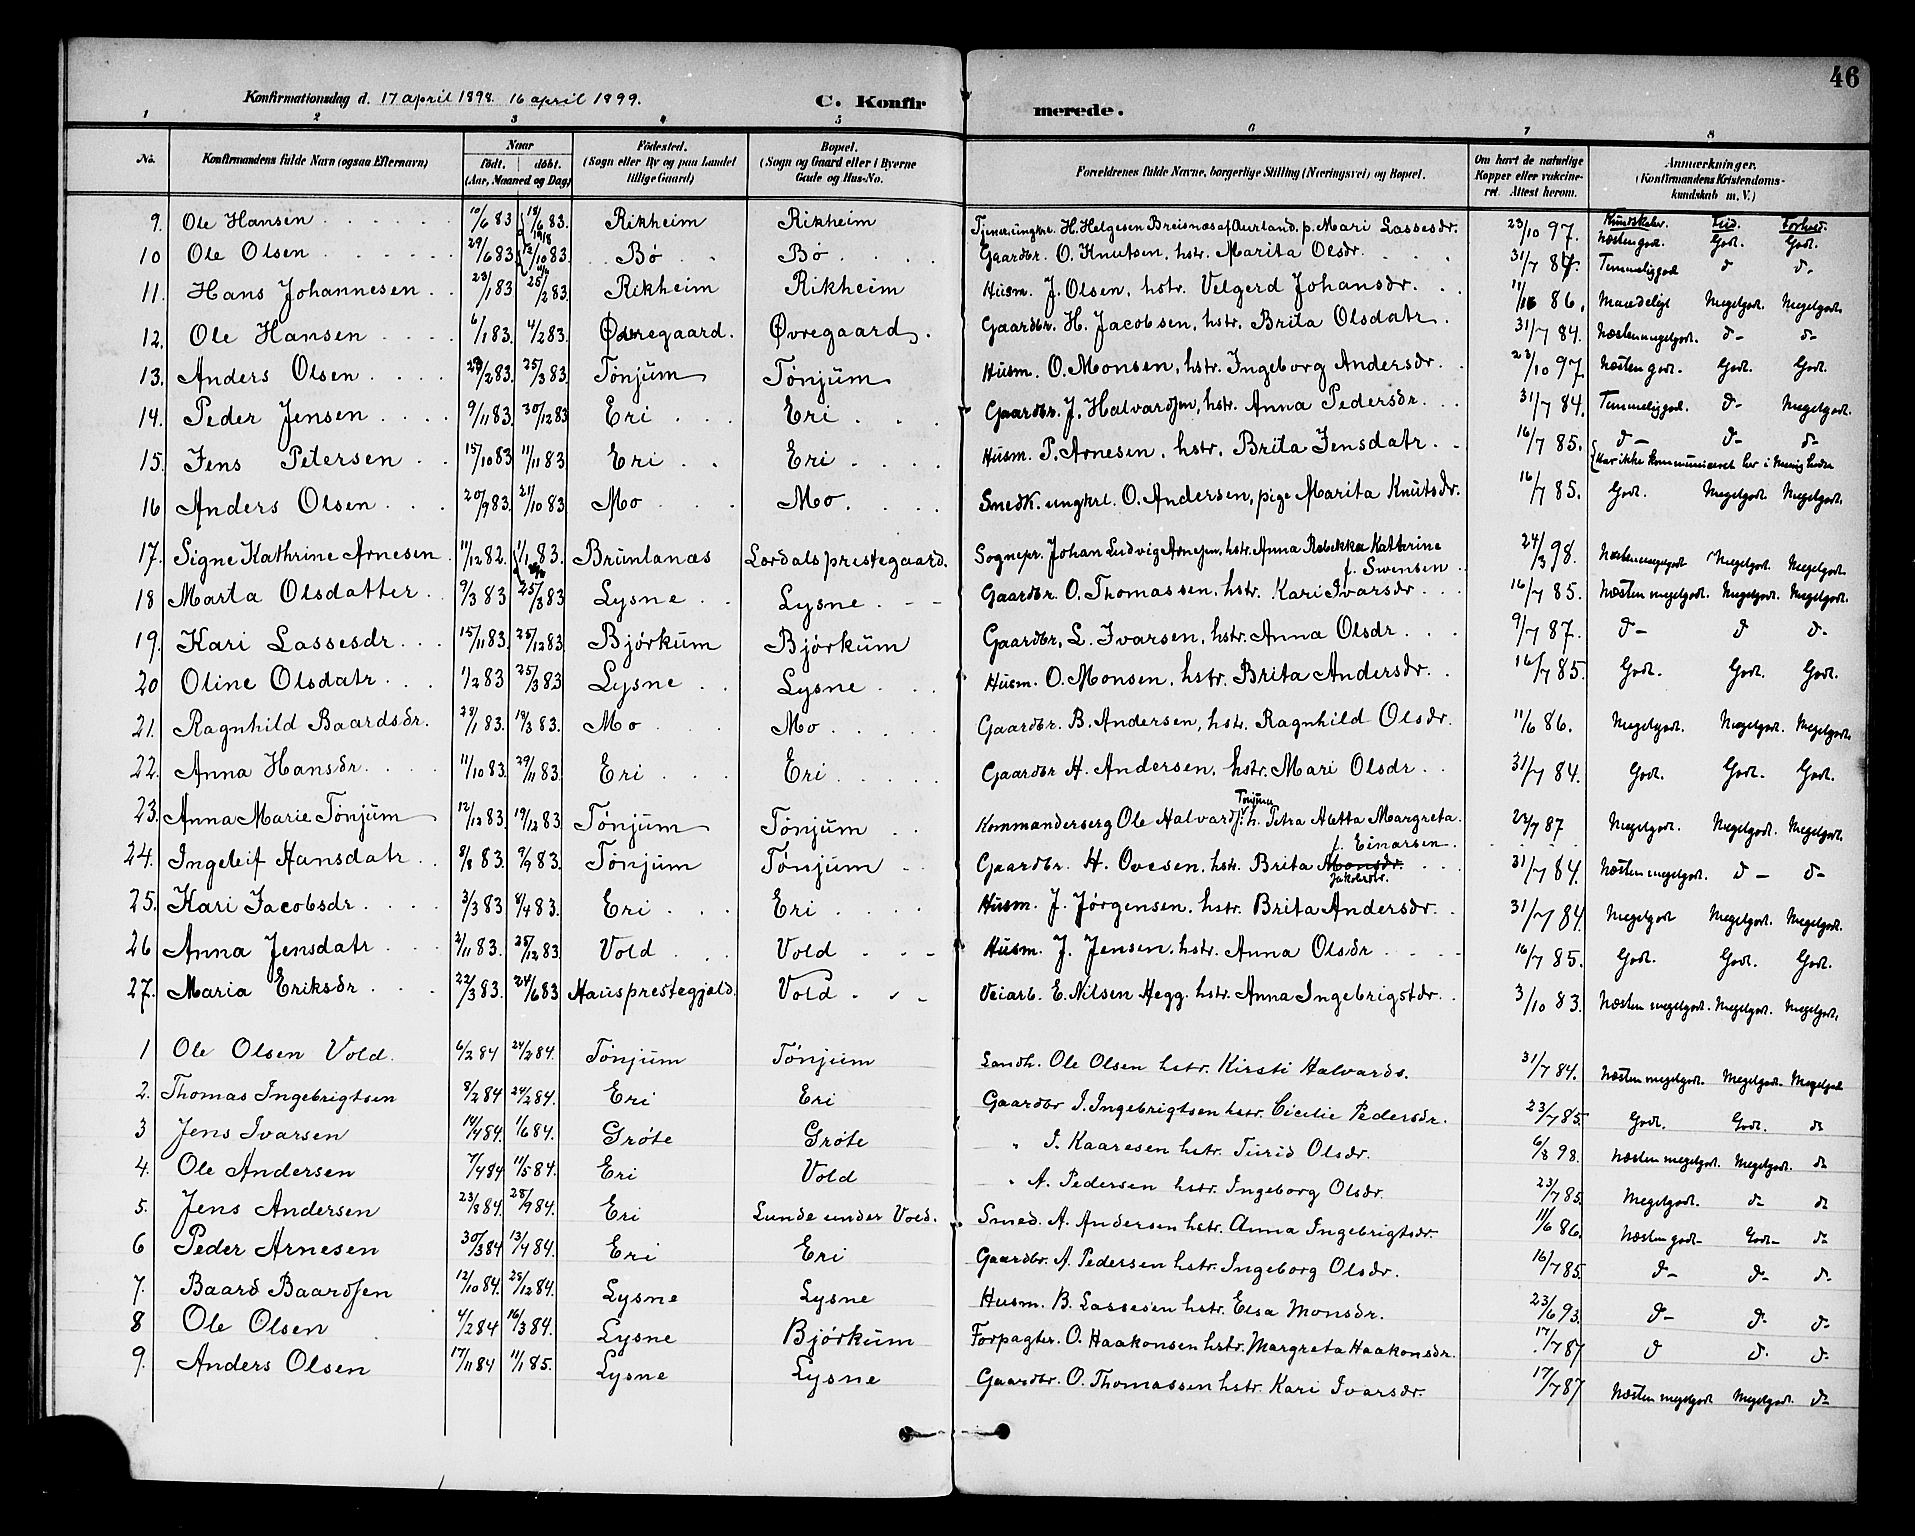 46
Konfirmationsdag d. 17 april 1898. 16 april 1899. C. Konfirmerede.
1 2 3 4 5 6 7 8
No. Konfirmandens fulde Navn (ogsaa Efternavn) Naar født. døbt. (Aar, Maaned og Dag) Fødested. (Sogn eller By og paa Landet tillige Gaard) Bopæl. (Sogn og Gaard eller i Byerne Gade og Hus-No. Forældrenes fulde Navne, borgerlige Stilling (Næringsvei) og Bopæl. Om havt de naturlige Kopper eller vakcineret. Attest herom. Anmærkninger. (Konfirmandens Kristendomskundskab m. V.)
Kundskaber. Flid. Forhold.
9. Ole Hansen 10/6 83 18/6 83. Rikheim Rikheim Tjener, ungkrl. H. Helgesen Breisnæs af Aurland, p. Mari Lassesdr. 23/10 97. Næsten godt. Godt. Godt.
10 Ole Olsen 29/6 83 Bø Bø Gaardbr. O. Knutsen, hstr. Marita Olsdr. 31/7 84. Temmelig godt d d-
11. Hans Johannesen 23/1 83 25/2 83. Rikheim Rikheim Husm. J. Olsen, hstr. Velgerd Johansdr. 86. Maadeligt Megetgodt. Megetgodt.
12. Ole Hansen 6/1 83. 4/2 83. Øvregaard. Øvregaard. Gaardbr. H. Jacobsen, hstr. Brita Olsdatr. 31/7 84. Næsten megetgodt. d- d-
13. Anders Olsen 83. 25/3 83. Tönjum Tönjum Husm. O. Monsen, hstr. Ingeborg Andersdr. 23/10 97 Næsten godt. Godt. Godt.
14. Peder Jensen 9/11 83. 30/12 83 Eri Eri Gaardbr. J. Halvardsen, hstr. Anna Pedersdr. 31/7 84. Temmeliggodt. d- Megetgodt.
15. Jens Petersen 15/10 83 11/11 83 Eri Eri Husm. P. Arnesen, hstr. Brita Jensdatr. 16/7 85. d- d- d-
Har ikke kommuniceret her i
16 Anders Olsen 20/9 83. 21/10 83. Mo Mo Smedk. ungkrl. O. Andersen, pige Marita Knutsdr. 16/7 85. Godt. Megetgodt. Megetgodt.
17. Signe Kathrine Arnesen 11/12 82. 1/1 83. Brunlanæs Lærdals prestegaard. Sognepr. Johan Ludvig Arnesen, hstr. Anna Rebekka Kathrine f. Swensen 24/3 98. Næsten megetgodt Megetgodt. Megetgodt.
18 Marta Olsdatter 9/3 83 25/3 83 Lysne Lysne Gaardbr. O. Thomassen, hstr. Kari Ivarsdr 16/7 85. Næsten megetgodt. Megetgodt. Megetgodt.
19. Kari Lassesdr 15/11 83. 25/12 83. Bjørkum Bjørkum Gaardbr. L. Ivarsen, hstr. Anna Olsdr 9/7 87. d- d d-
20 Oline Olsdatr 1/2 83 25/3 83 Lysne Lysne Husm. O. Monsen, hstr. Brita Andersdr 16/7 85. Godt. Godt. Godt.
21. Ragnhild Baardsdr. 28/1 83. 19/3 83. Mo Mo Gaardbr. B. Andersen, hstr. Ragnhild Olsdr. 11/6 86. Megetgodt. Megetgodt. Megetgodt.
22. Anna Hansdr 11/10 83. 29/11 83. Eri Eri Gaardbr H. Andersen, hstr. Mari Olsdr 31/7 84. Godt. Godt. Godt.
23. Anna Marie Tönjum 12/12 83. 19/12 83 Tönjum Tönjum Kommandersерg Ole Halvards. Tonjum h. Petra Aletta Margreta f. Einarsen. 23/7 87 Megetgodt. Megetgodt. Megetgodt.
24. Ingeleif Hansdatr 8/8 83. 9/9 83. Tönjum Tönjum Gaardbr. H. Ovesen, hstr. Brita Monsdr. Jakobsdr. 31/7 84. Næsten megetgodt. d- d-
25. Kari Jacobsdr 3/3 83 8/4 83. Eri Eri Husm. J. Jørgensen, hstr. Brita Andersdr. 31/7 84 Megetgodt Megetgodt. Megetgodt.
26 Anna Jensdatr 2/11 83. 25/12 83. Vold Vold Husm. J. Jensen, hstr. Anna Olsdr 16/7 85. Godt. Godt. Godt.
27. Maria Eriksdr 22/3 83. 24/6 83 Hausprestegjeld. Vold Veiarb. E. Nilsen Hegg. hstr. Anna Ingebrigtsdr. 3/10 83. Næsten megetgodt. Megetgodt. Megetgodt.
1 Ole Olsen Vold. 6/2 84 24/2 84. Tönjum Tönjum Landh. Ole Olsen hstr. Kirsti Halvards. 31/7 84. Næsten megetgodt. Megetgodt. Megetgodt
2. Thomas Ingebrigtsen 8/2 84 24/2 84. Eri Eri Gaardbr I. Ingebrigtsen hstr. Cicilie Pedersdr. 23/7 85. Godt. Godt. d
3 Jens Ivarsen 14/4 84. 1/6 84. Grøte Grøte " I. Kaaresen hstr. Turid Olsdr. 6/8 98. Næsten megetgodt. Megetgodt. d
4. Ole Andersen 7/4 84 11/5 84. Eri Vold " A. Pedersen hstr. Ingeborg Olsdr. 23/7 85. Megetgodt. d- d
5. Jens Andersen 23/8 84. 28/9 84. Eri Lunde under Vold. Smed. A. Andersen hstr. Anna Ingebrigtsdr. 11/6 86. Næsten godt- Godt- d-
6 Peder Arnesen 30/3 84 13/4 84. Eri Eri Gaardbr. A. Pedersen hstr. Ingeborg Olsdr. 16/7 85. d- d- d-
7. Baard Baardsen 12/10 84. 25/12 84. Lysne Lysne Husm. B. Lassesen hstr. Elsa Monsdr. 23/6 93. d- d- d-
8 Ole Olsen 4/2 84 16/3 84. Lysne Bjørkum Forpagter. O. Haakonsen hstr. Margreta Haakonsdr. 17/7 87 d d. d-
9. Anders Olsen 17/11 84 11/1 85. Lysne Lysne Gaardbr. O. Thomassen hstr. Kari Ivarsdr. 17/7 87 Næsten megetgodt Megetgodt. d-